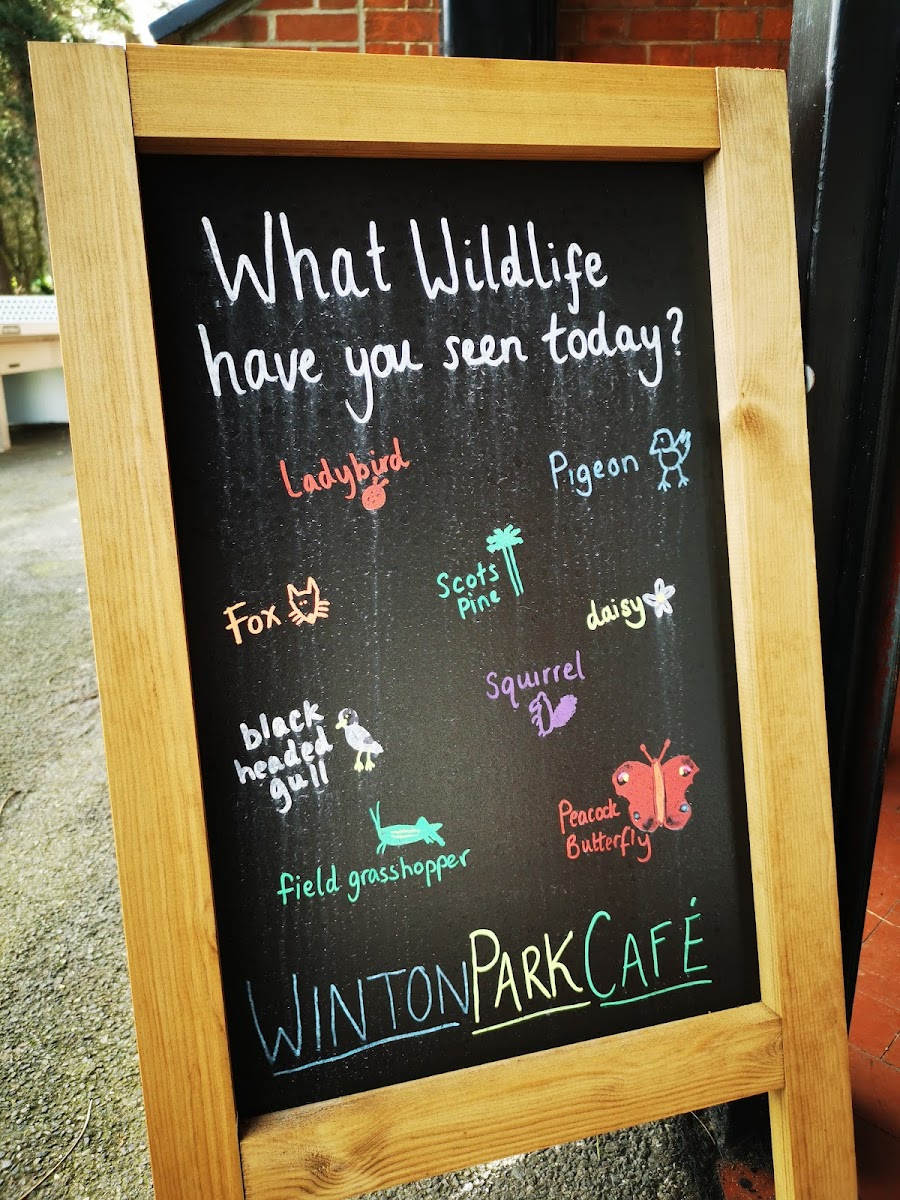 What Wildlife
have you seen today?
Ladybird
Pigeon
Scots
Pine
Fox
daisy
Squirrel
black
headed
gull
Peacock
Butterfly
field grasshopper
WINTON PARK CAFÉ